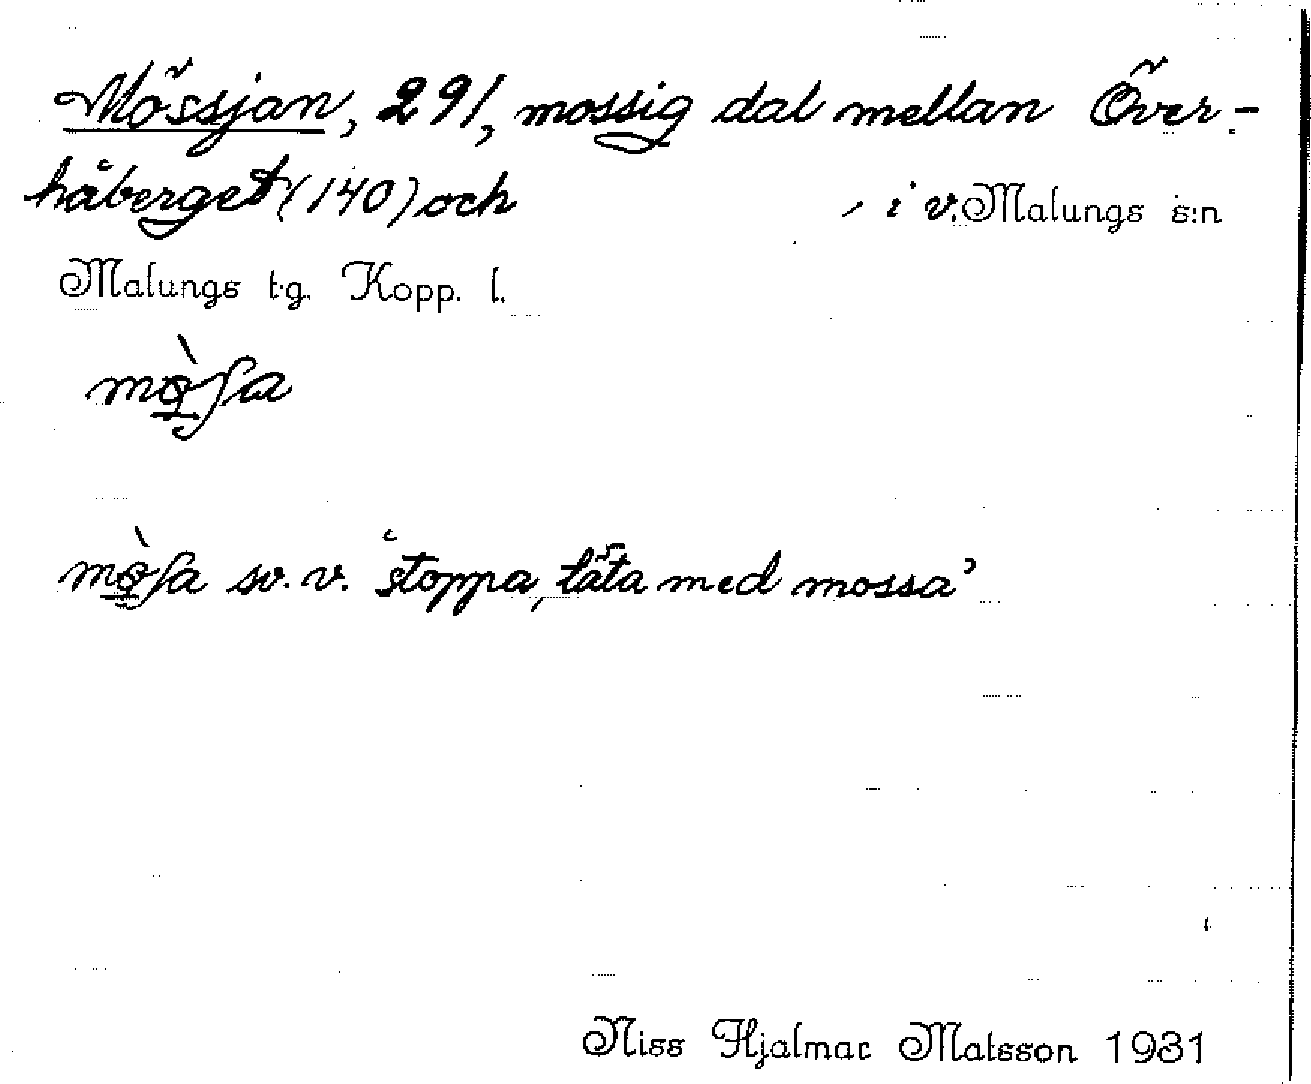 Mössjan, 291, mossig dal mellan Över-
håberget (140) och , i v. Malungs s:n
Malungs tg. Kopp. l.
sv. v. 'stoppa, täta med mossa'
Niss Hjalmar Matsson 1931